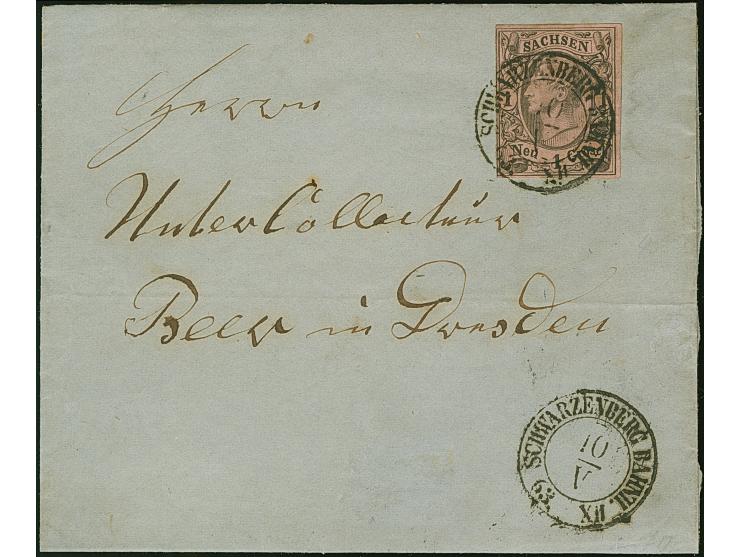 SACHSEN
1
Neu
SCHWARZENBERG
10
V
XII
Herrn
Unter Collecteur
Beer in Dresden
SCHWARZENBERG BAHNH.
10
V
63 XII